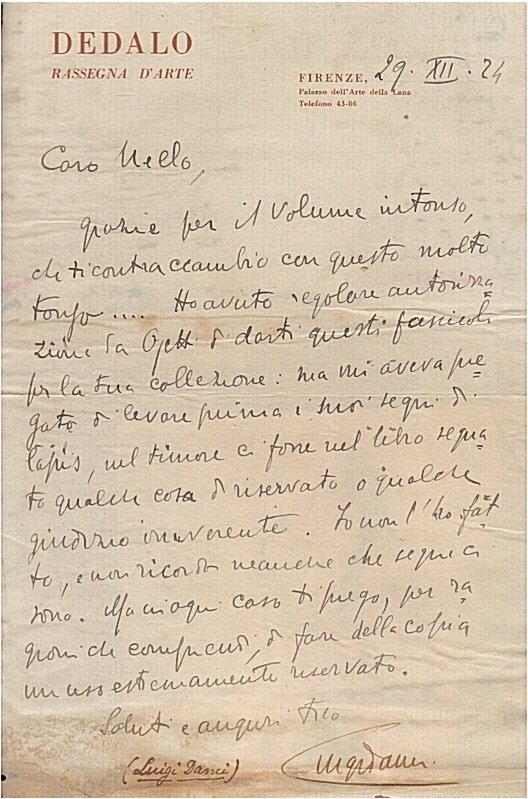 DEDALO
RASSEGNA D'ARTE
FIRENZE, 29. XII. 24
Palazzo dell'Arte della Lana
Telefono 43-06
Caro Nello,
grazie per il volume intonso,
che ti contraccambio con questo molto
tonso .... Ho avuto regolare autorizza
zione da Ojetti di darti questi fascicoli
per la tua collezione: ma mi aveva pre=
gato di levare prima i suoi segni di
lapis, nel timore ci fosse nel libro segna=
to qualche cosa di riservato o qualche
giudizio irriverente. Io non l'ho fat=
to, e non ricordo neanche che segni ci
sono. Ma in ogni caso ti prego, per ra=
gioni che comprendi, di fare della copia
un uso estremamente riservato.
Saluti e auguri tuo
(Luigi Dami)